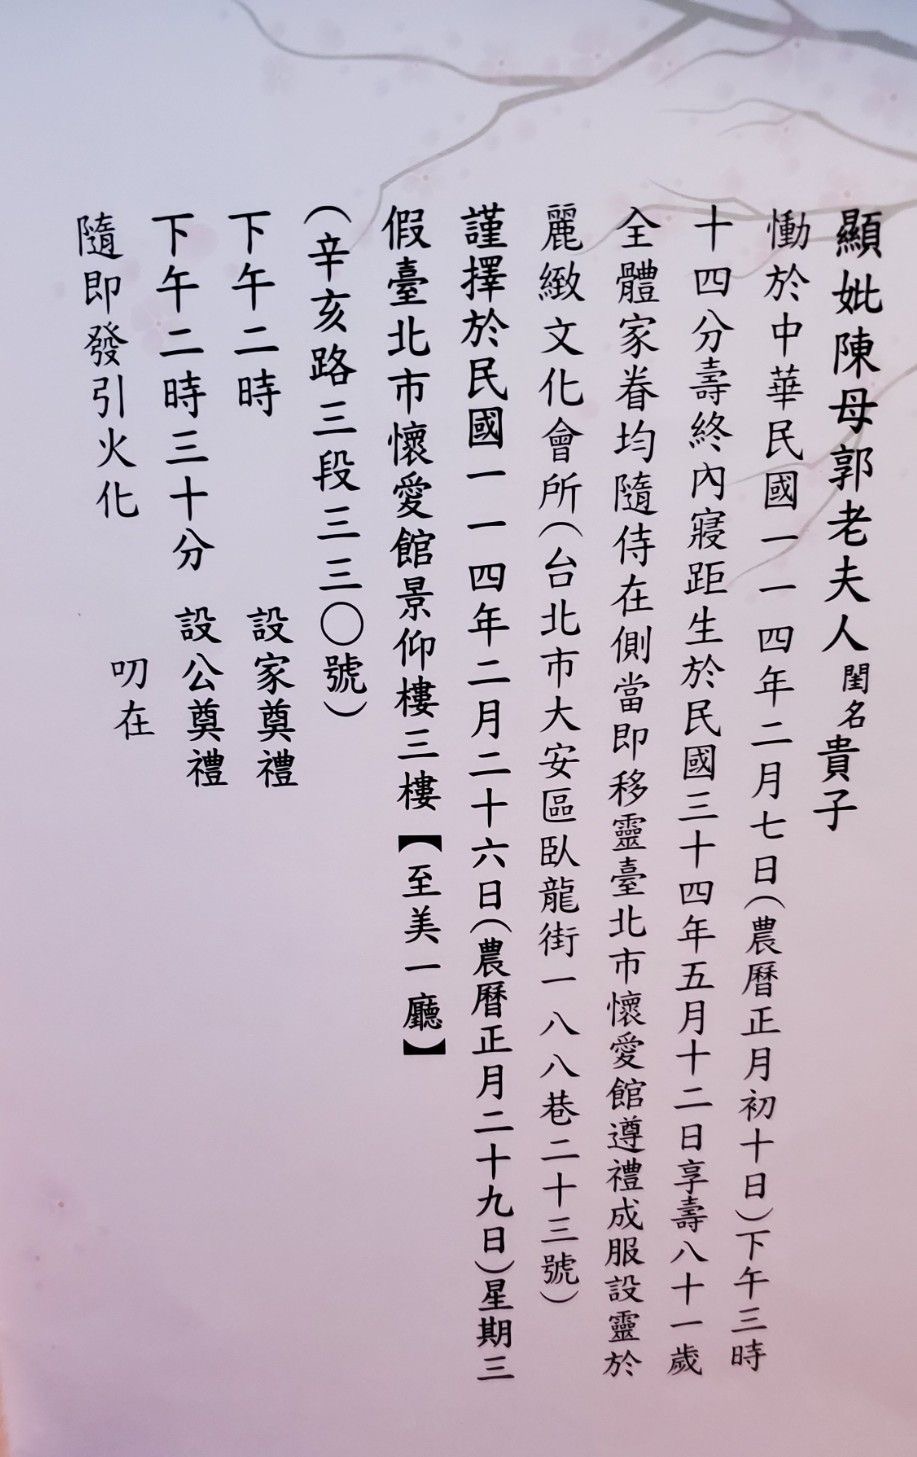 顯妣陳母郭老夫人閨名貴子
慟於中華民國一一四年二月七日(農曆正月初十日)下午三時
十四分壽終內寢距生於民國三十四年五月十二日享壽八十一歲
全體家眷均隨侍在側當即移靈臺北市懷愛館遵禮成服設靈於
麗緻文化會所(台北市大安區臥龍街一八八巷二十三號)
謹擇於民國一一四年二月二十六日(農曆正月二十九日)星期三
假臺北市懷愛館景仰樓三樓【至美一廳】
(辛亥路三段三三〇號)
下午二時 設家奠禮
下午二時三十分 設公奠禮
隨即發引火化 叨在